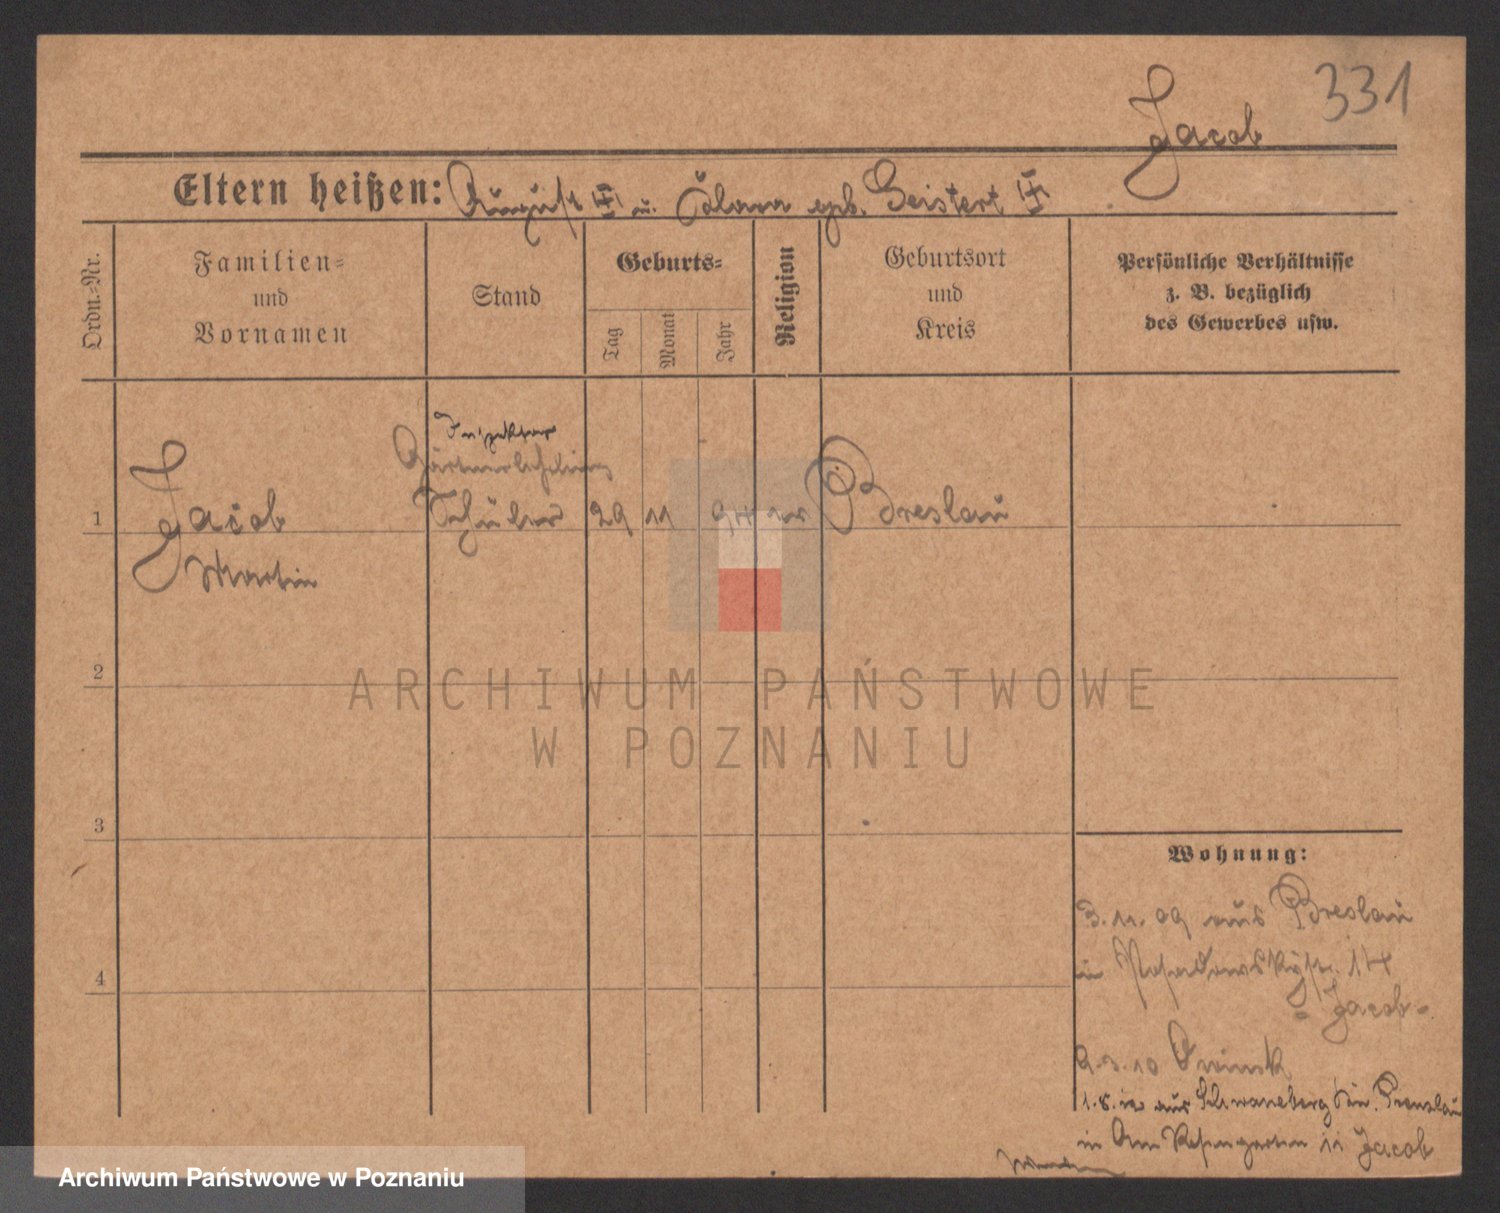 331
Jacob
Eltern heißen: August u. Clara geb. Geistert
Ordn.-Nr.
Familien-
und
Vornamen
Stand
Geburts-
Tag
Monat
Jahr
Religion
Geburtsort
und
Kreis
Persönliche Verhältnisse
z. B. bezüglich
des Gewerbes usw.
Inspektor
Gärtnerlehrling
1 Jacob Schüler 29 11 94 Breslau
Martin
2
3
4
Wohnung:
3.11.09 aus Breslau
in 14
- Jacob -
9.3.10 Owinsk
aus Schwaneberg Prenzlau
in Am 11 Jacob
ARCHIWUM PAŃSTWOWE
W POZNANIU
Archiwum Państwowe w Poznaniu